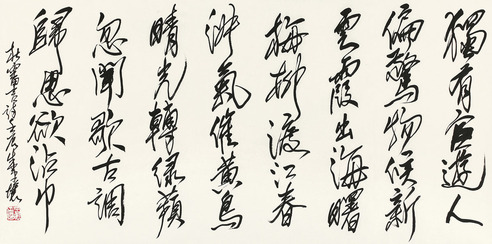 獨有宦遊人
偏驚物候新
雲霞出海曙
梅柳渡江春
淑氣催黃鳥
晴光轉綠蘋
忽聞歌古調
歸思欲沾巾
杜審言詩